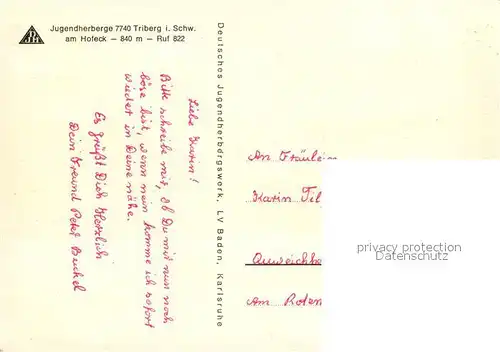 Jugendherberge 7740 Triberg i. Schw.
am Hofeck — 840 m — Ruf 822
Deutsches Jugendherbergswerk, LV Baden, Karlsruhe
Liebe Karin!
Bitte schreibe mir, ob Du mir nun noch
böse bist, wenn nein komme ich sofort
wieder in Deine nähe.
Es grüßt Dich Herzlich
Dein Freund Peter
An Fräulein
Karin
Am Roten
privacy protection
Datenschutz